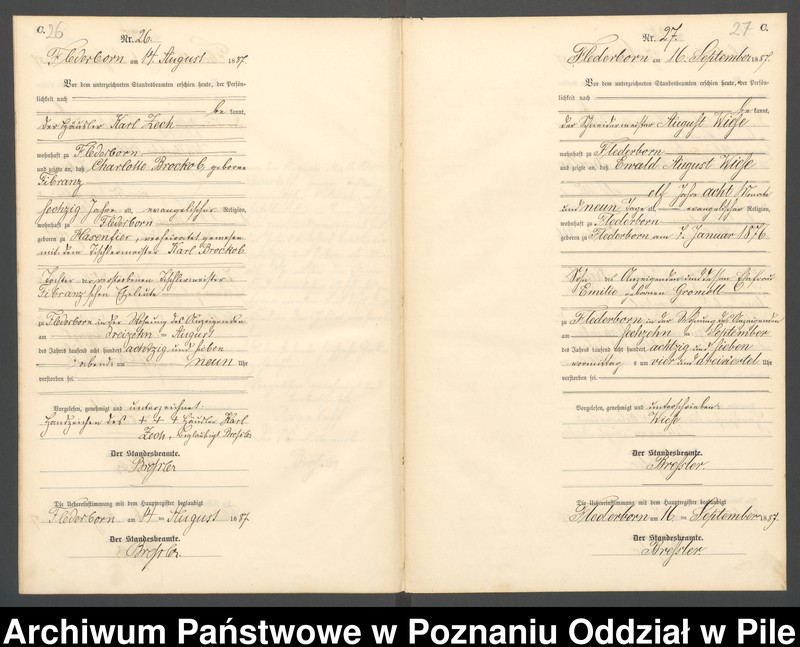 C. 26
Nr. 26.
Flederborn am 14. August 1887.
Vor dem unterzeichneten Standesbeamten erschien heute, der Persön-
lichkeit nach
be kannt,
der Häusler Karl Zech
wohnhaft zu Flederborn
und zeigte an, daß Charlotte Brockob, geborene
Fibranz
sechzig Jahre alt, evangelischer Religion,
wohnhaft zu Flederborn
geboren zu Hasenfier, verheirathet gewesen
mit dem Tischlermeister Karl Brockob
Tochter der verstorbenen Tischlermeister
Fibranz'schen Eheleute
zu Flederborn in der Wohnung des Anzeigenden
am dreizehn ten August
des Jahres tausend acht hundert achtzig und sieben
abends um neun Uhr
verstorben sei.
Vorgelesen, genehmigt und unterzeichnet.
Handzeichen des + + + Häusler Karl
Zech, beglaubigt Bressler
Der Standesbeamte.
Bressler
Die Uebereinstimmung mit dem Hauptregister beglaubigt
Flederborn am 14 ten August 1887.
Der Standesbeamte.
Bressler.
27 C.
Nr. 27.
Flederborn am 16. September 1887.
Vor dem unterzeichneten Standesbeamten erschien heute, der Persön-
lichkeit nach
be kannt,
der Schneidermeister August Wiese
wohnhaft zu Flederborn
und zeigte an, daß Ewald August Wiese
elf Jahre acht Monate
und neun Tage alt evangelischer Religion,
wohnhaft zu Flederborn
geboren zu Flederborn am 7. Januar 1876
Sohn des Anzeigenden und dessen Ehefrau
Emilie, geborenen Gromoll
zu Flederborn in der Wohnung des Anzeigenden
am sechzehn ten September
des Jahres tausend acht hundert achtzig und sieben
vormittag s um vier und dreiviertel Uhr
verstorben sei.
Vorgelesen, genehmigt und unterschrieben.
Wiese
Der Standesbeamte.
Bressler.
Die Uebereinstimmung mit dem Hauptregister beglaubigt
Flederborn am 16 ten September 1887.
Der Standesbeamte.
Bressler.
Archiwum Państwowe w Poznaniu Oddział w Pile